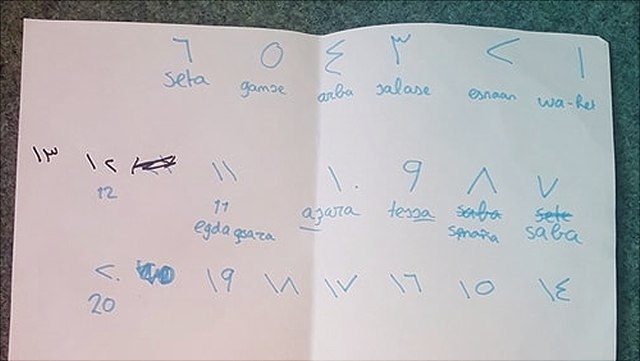 ٦ ٥ ٤ ٣ ٢ ١
seta gamse arba salase esnaan wa-het
١٣ ١٢ ١١ ١٠ ٩ ٨ ٧
12 11 azara tessa saba sete
egdagsara smaña saba
٢٠ ١٩ ١٨ ١٧ ١٦ ١٥ ١٤
20